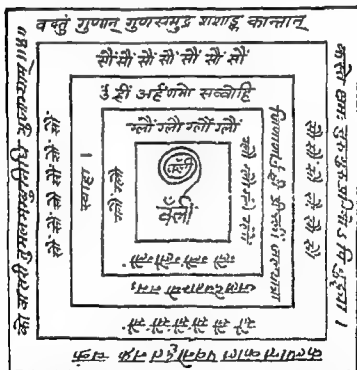 वक्तुं गुणान् गुणसमुद्र शशाङ्क कान्तान्
कस्ते क्षमः सुरगुरुप्रतिमोऽपि बुद्ध्या ।
कल्पान्तकाल पवनोद्धत नक्र चक्रं
को वा तरीतुमलमम्बुनिधिं भुजाभ्याम् ॥४॥
सौं सौं सौं सौं सौं सौं
सौं सौं सौं सौं सौं सौं
सौं सौं सौं सौं सौं सौं
सौं सौं सौं सौं सौं सौं
ह्रीं अर्हं णमो सव्वोहि
जिणाणं ह्रीं श्रीं क्लीं जलयात्रा
जलदेवताभ्यो नमः
स्वाहा ।
ग्लौं ग्लौं ग्लौं ग्लौं
ग्लौं ग्लौं ग्लौं ग्लौं
ग्लौं ग्लौं ग्लौं